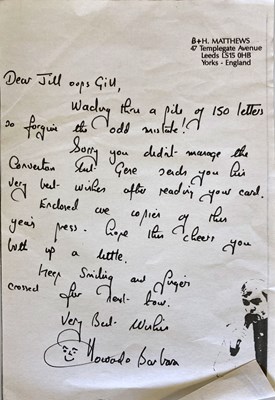 B+H. MATTHEWS
47 Templegate Avenue
Leeds LS15 0HB
Yorks - England
Dear Jill oops Gill,
Wading thru a pile of 150 letters
so forgive the odd mistake!
Sorry you didn't manage the
Convention but Gene sends you his
very best wishes after reading your card.
Enclosed are copies of this
years press. Hope this cheers you
both up a little.
Keep Smiling and fingers
crossed for next
Very Best Wishes
Howard Barbara